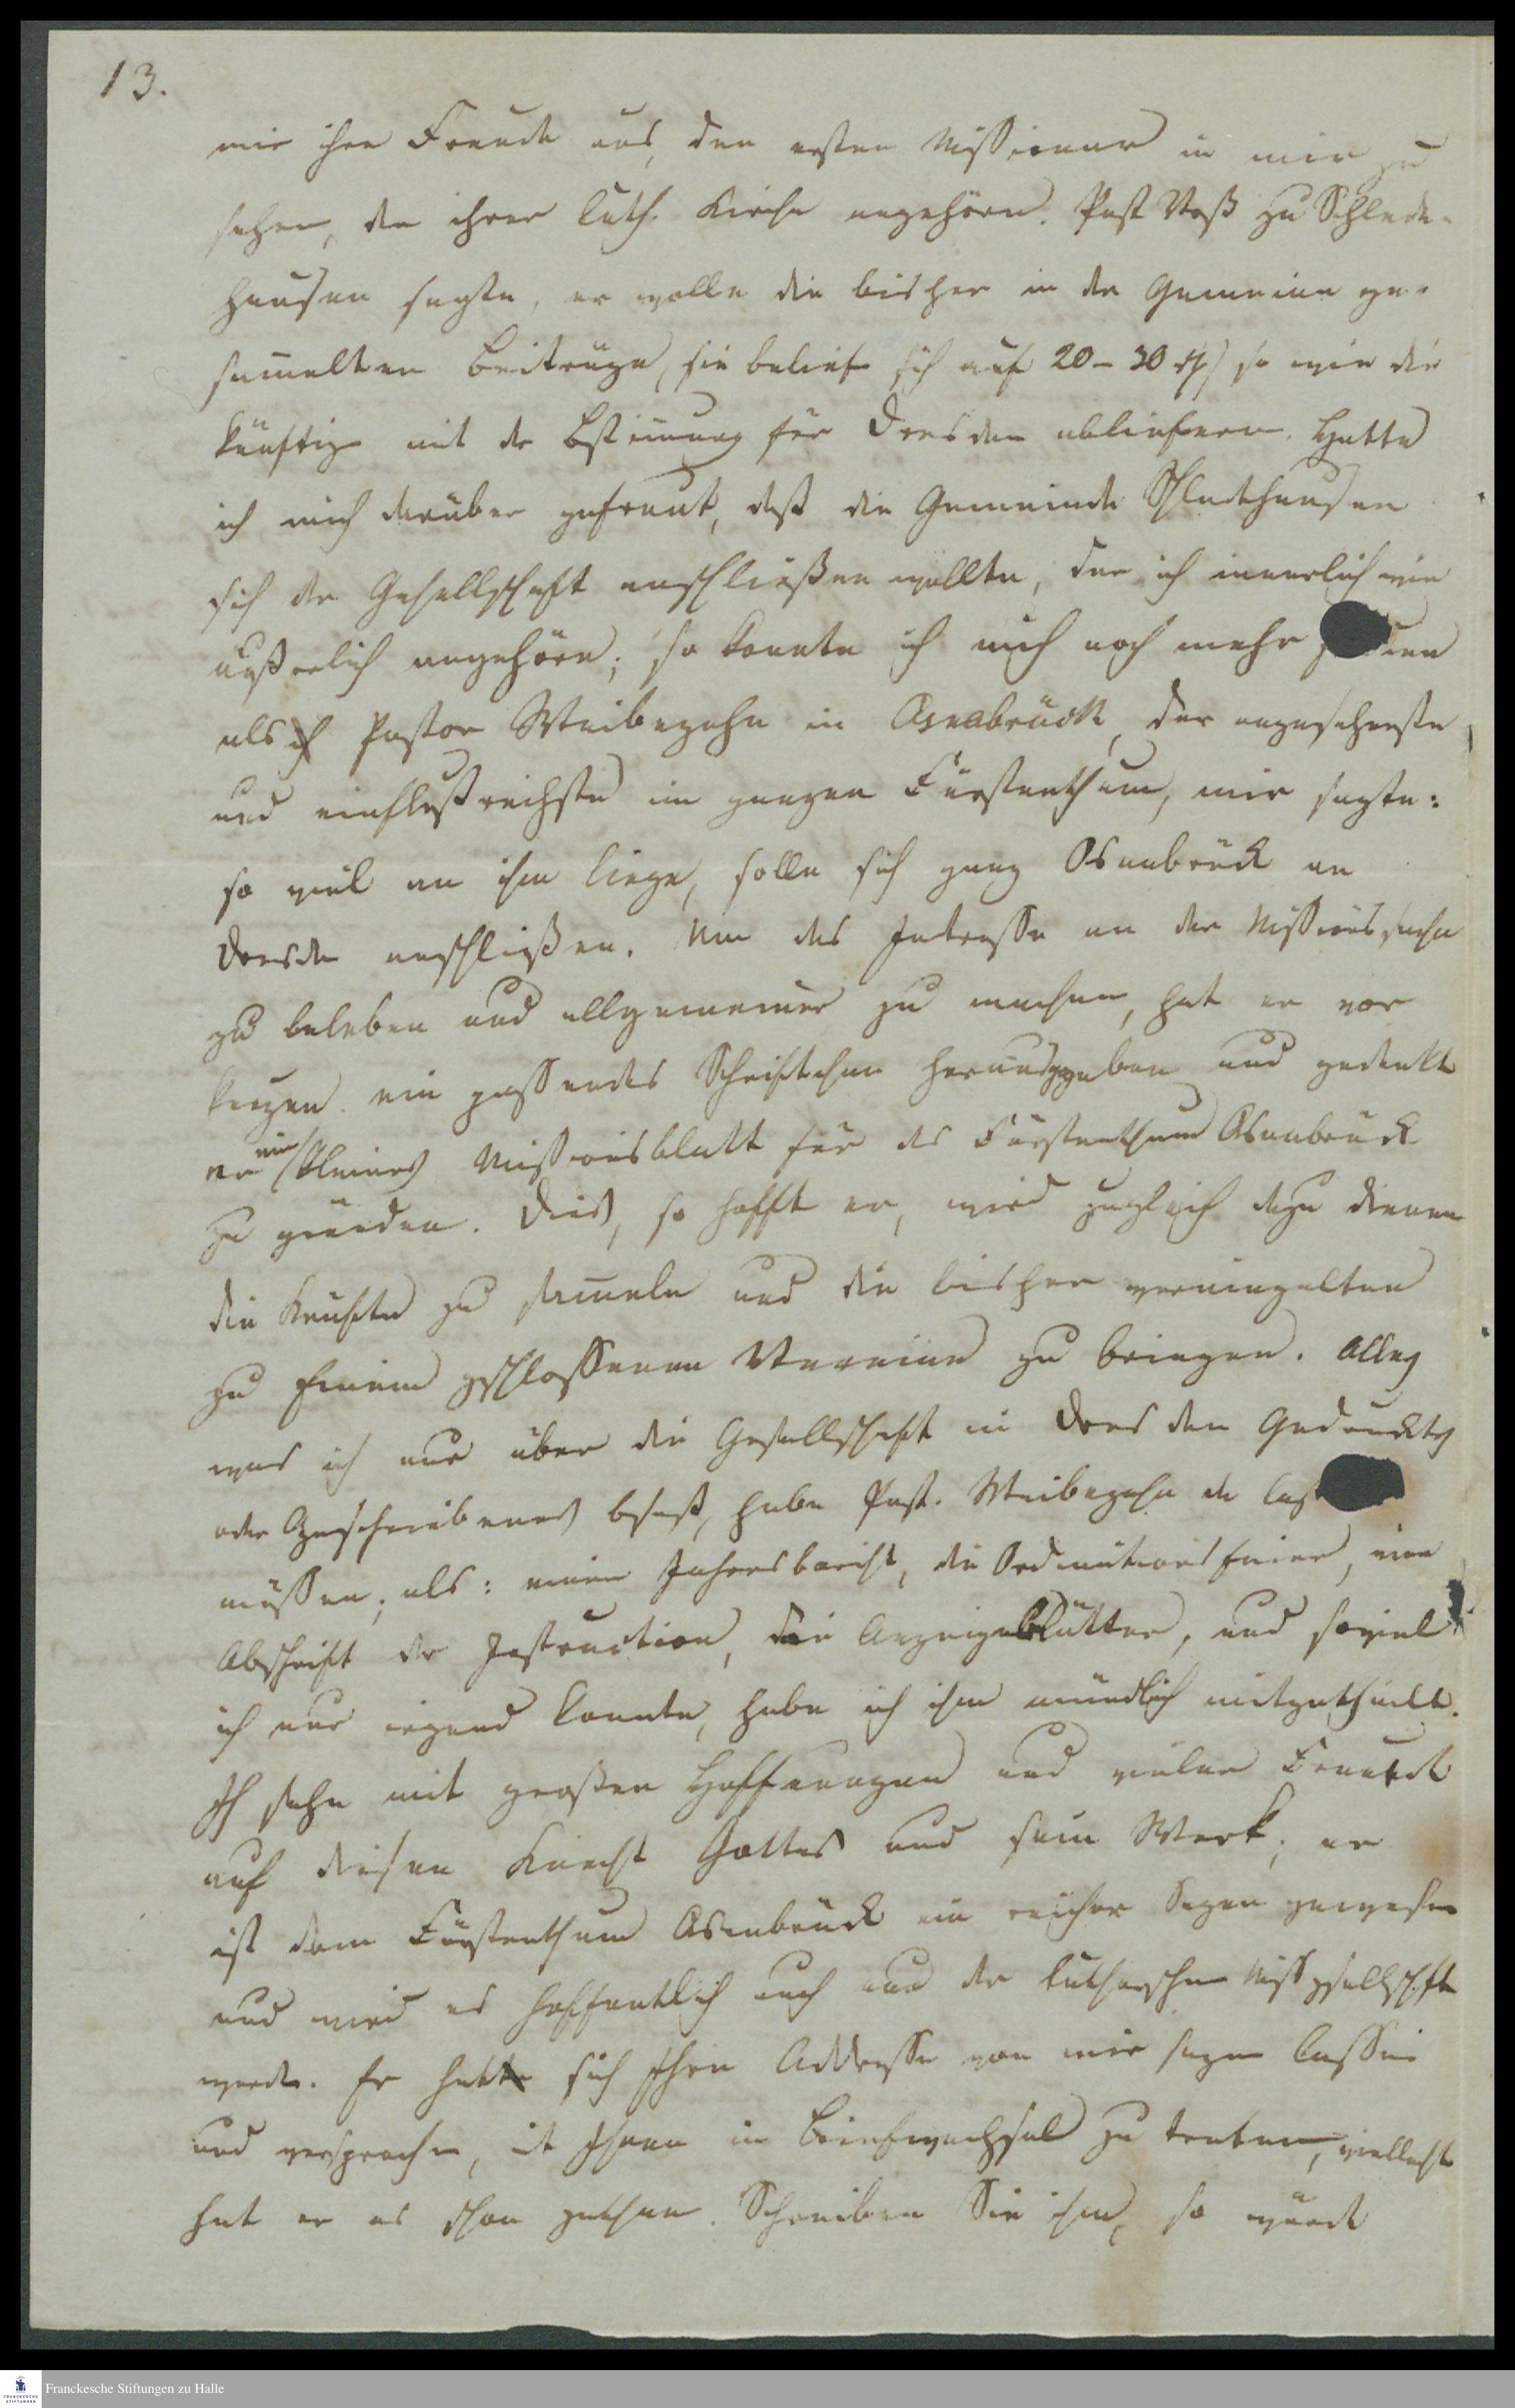 13.
mir ihre Freude aus, den ersten Missionar in mir zu
sehen, der ihrer luth. Kirche angehöre. Past Voß zu Schlede-
hausen sagte, er wolle die bisher in der Gemeine ge-
sam̄elten Beiträge, (sie belief sich auf 20-30 rθ) so wie die
künftig mit der Bstim̄ung für Dresden abliefern. Hatte
ich mich darüber gefreut, daß die Gemeinde Schledehausen
sich der Gesellschaft anschließen wollte, der ich innerlich wie
äußerlich angehöre; so konnte ich mich noch mehr
als ich Pastor Weibezahn in Osnabrück, der angesehenste
und einflußreichste im ganzen Fürstenthum, mir sagte:
so viel an ihm liege, solle sich ganz Osnabrück an
Dresden anschließen. Um das Interesse an der Missionssache
zu beleben und allgemeiner zu machen, hat er vor
kurzen ein passendes Schriftchen herausggeben und gedenkt
er ein kleines Missionsblatt für das Fürstenthum Osnabrück
zu gründen. Dies, so hofft er, wird zugleich dazu dienen
die Kräfte zu sam̄eln und die bisher vereinzelten
zu Einem gschlossenen Vereine zu bringen. Alles
was ich nur über die Gesellschaft in Dresden Gedrucktes
oder Geschriebenes besaß, habe Past. Weibezahn da
müssen, als: einen Jahresbericht, die Ordinationsfeier, eine
Abschrift der Instruction, die Anzeigeblätter, und soviel
ich nur irgend konnte, habe ich ihm mündlich mitgetheilt.
Ich sehe mit großen Hoffnungen und vieler Freude
auf diesen Knecht Gottes und sein Werk; er
ist dem Fürstenthum Osnabrück ein reicher Segen gewesen
und wird es hoffentlich auch nun der lutherschen Missgsellschaft
werden. Er hatte sich Ihre Addresse von mir sagen lassen
und versprochen, mit Ihnen in Briefwechsel zu treten, vielleicht
hat er es schon gethan. Schreiben Sie ihm, so würde
Franckesche Stiftungen zu Halle